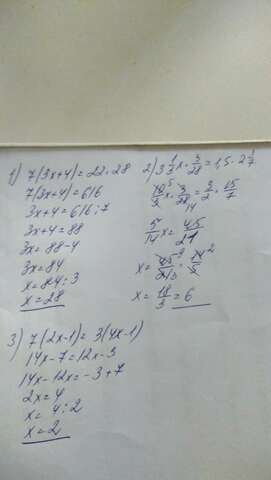 1) 7(3x+4)=22·28
7(3x+4)=616
3x+4=616:7
3x+4=88
3x=88-4
3x=84
x=84:3
x=28
2) 3 1/3 x · 3/28 = 1,5 · 2 1/7
10/3 x · 3/28 = 3/2 · 15/7
5/14 x = 45/14
x = 45/14 · 14/5
x = 18/3 = 6
3) 7(2x-1)=3(4x-1)
14x-7=12x-3
14x-12x=-3+7
2x=4
x=4:2
x=2